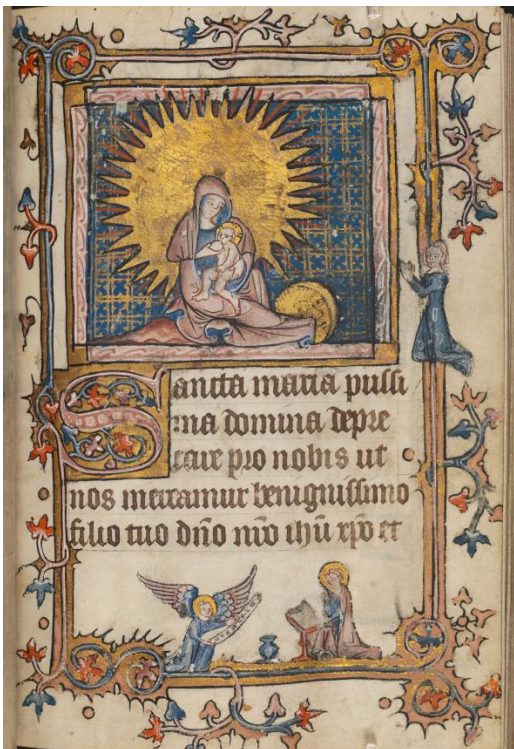 Sancta maria pussi
ma domina depre
care pro nobis ut
nos mereamur benignissimo
filio tuo dño nr̃o ihũ xp̃o et